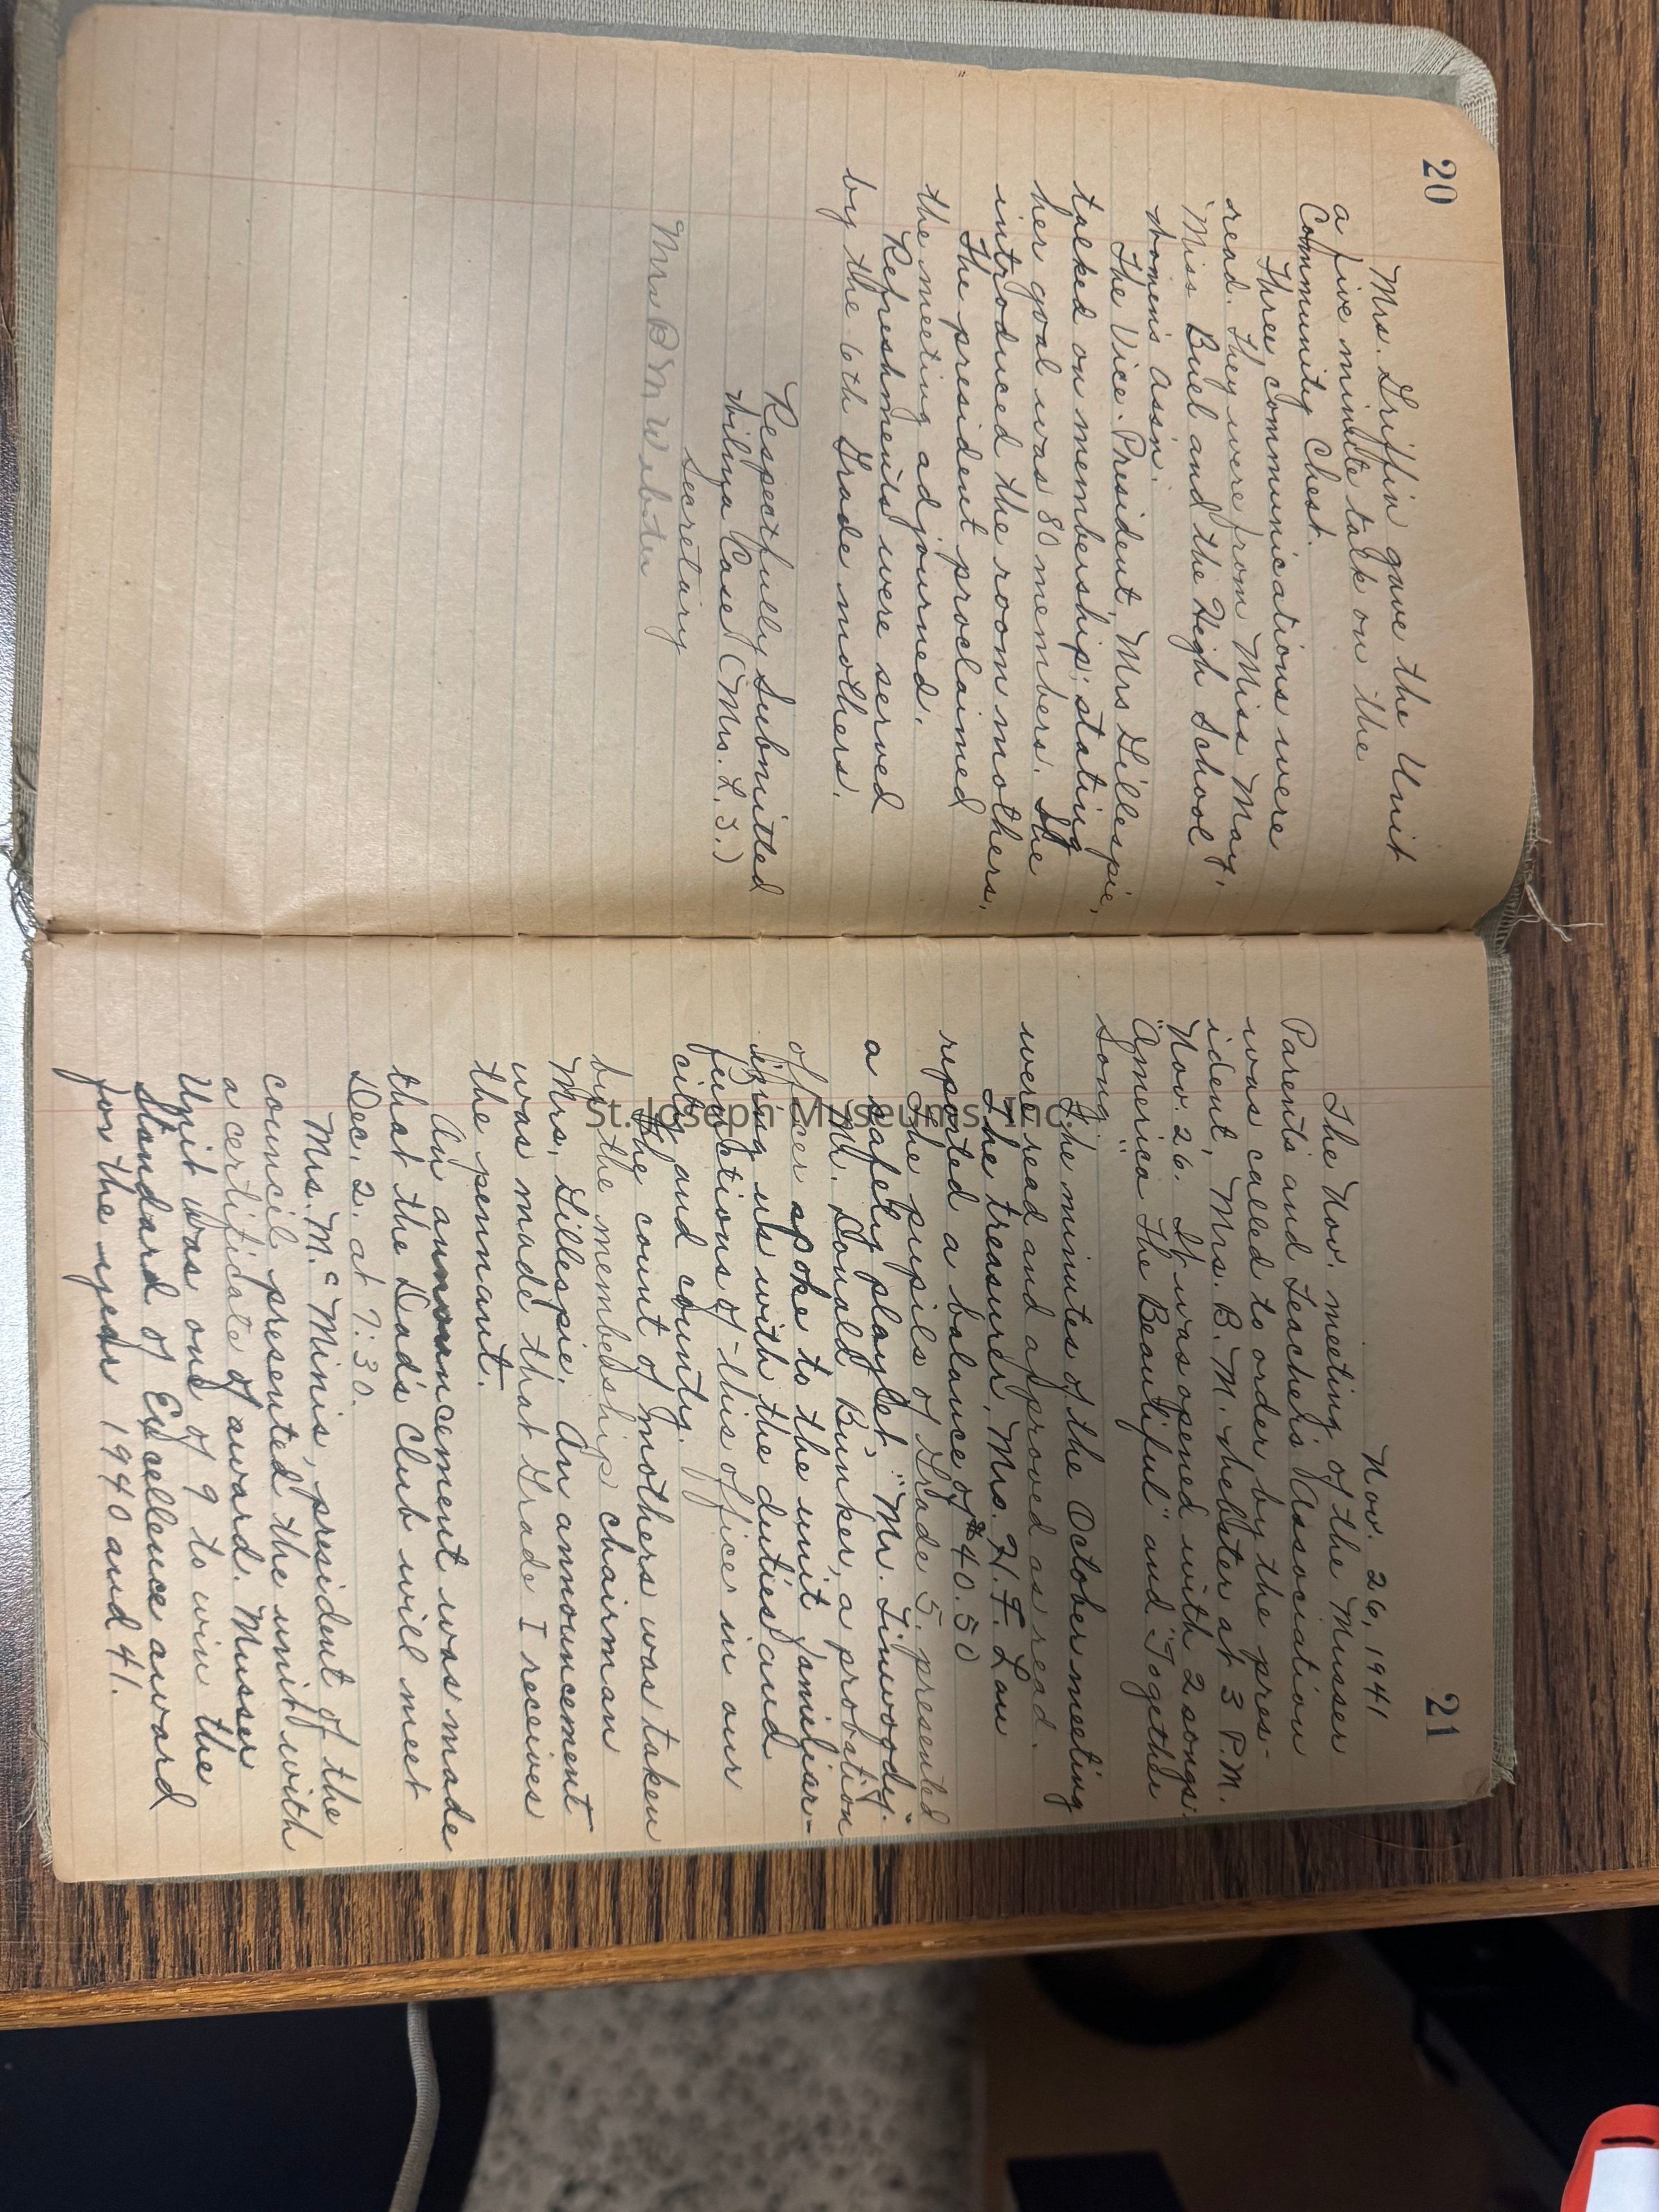 20
Mrs. Griffin gave the Unit
a five minute talk on the
Community Chest.
Three communications were
read. They were from Miss May,
Miss Buel and the High School
Women's Ass'n.
The Vice-President, Mrs Gillespie,
talked on membership; stating
her goal was 80 members. She
introduced the room mothers.
The president proclaimed
the meeting adjourned.
Refreshments were served
by the 6th Grade mothers.
Respectfully Submitted
Wilma Case (Mrs. L. J.)
Secretary
Mrs B M Webster
21
Nov. 26, 1941
The Nov. meeting of the Musser
Parents and Teachers Association
was called to order by the pres-
ident, Mrs. B. M. Webster at 3 P.M.
Nov. 26. It was opened with 2 songs:
"America The Beautiful" and "Together
Song."
The minutes of the October meeting
were read and approved as read.
The treasurer, Mrs. H. F. Lau
reported a balance of $40.50
The pupils of Grade 5, presented
a safety playlet, "Mr. Timwoody."
Mr. Donald Bunker, a probation
officer spoke to the unit familiar-
izing us with the duties and
functions of this office in our
city and county.
The count of mothers was taken
by the membership chairman
Mrs. Gillespie. An announcement
was made that Grade I receives
the pennant.
An announcement was made
that the Dad's Club will meet
Dec. 2. at 7:30.
Mrs. McMinis, president of the
council presented the unit with
a certificate of award. Musser
Unit was one of 9 to win the
Standard of Excellence award
for the years 1940 and 41.
St. Joseph Museums, Inc.